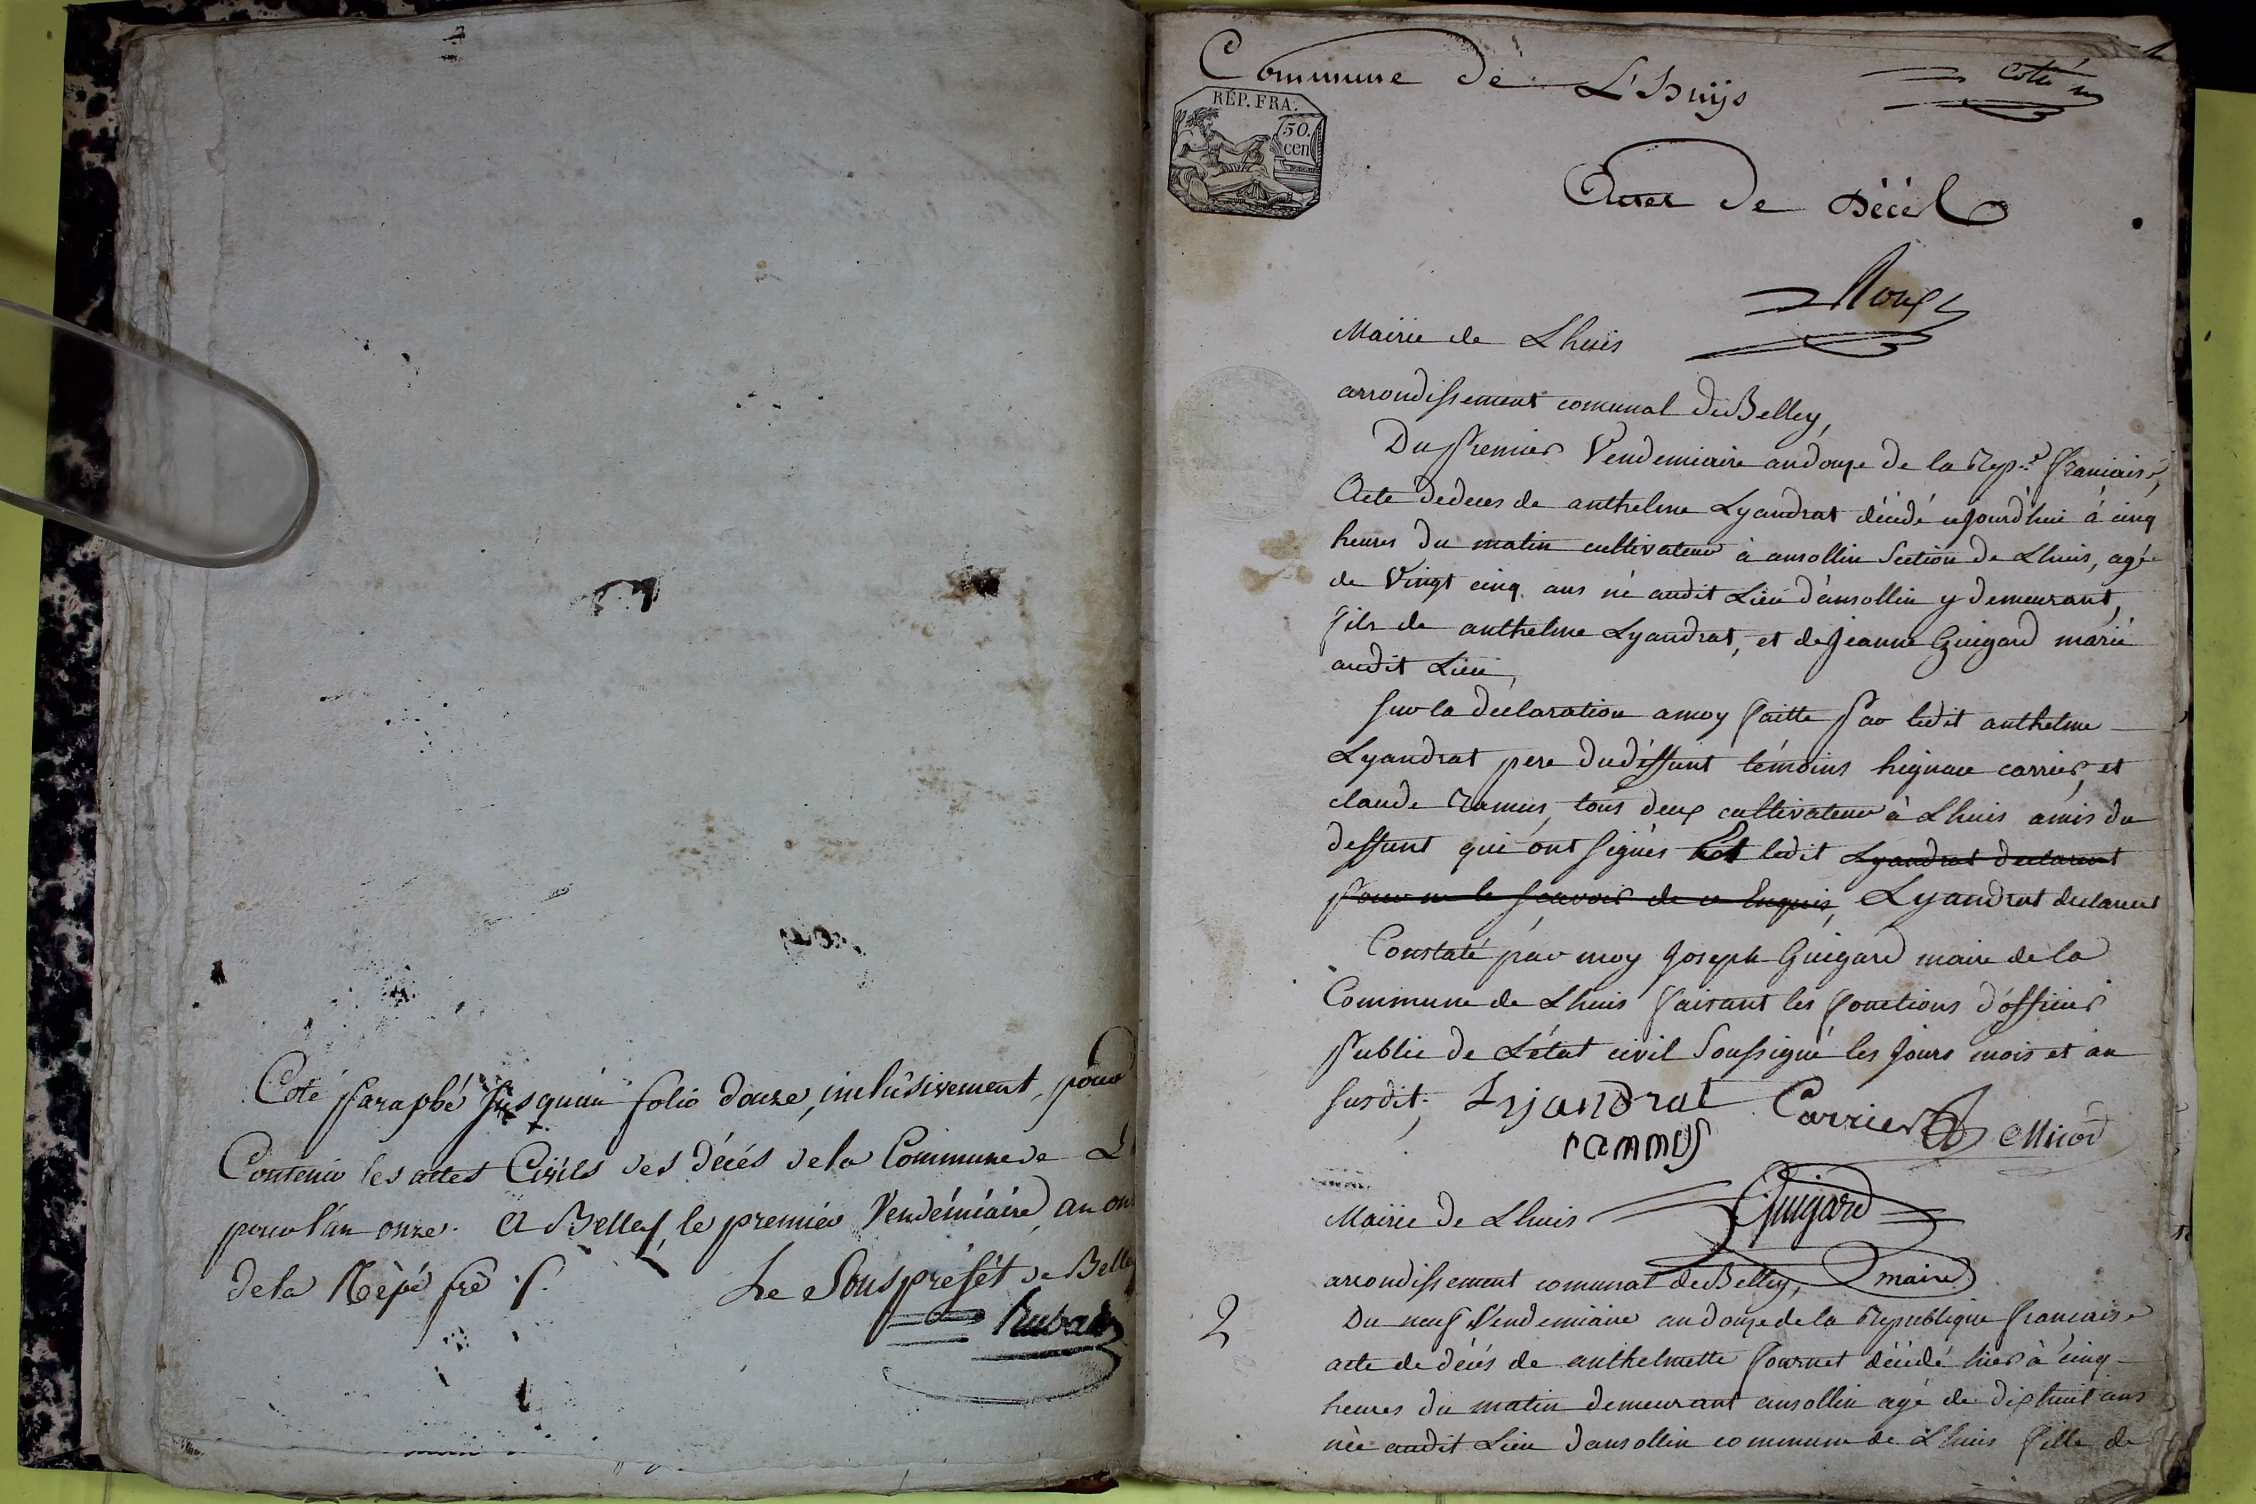 Coté parapbé Jusquau folio douze, inclusivement, pour
Contenir les actes Civils des décés de la Commune de L
pour l'an onze. A Belley, le premier Vendémiaire, an on
de la Rèpé frè ·/.
Le Sousprefét de Belle
Rubat
1
Commune de L'huÿs
Coté
RÉP. FRA.
50.
cen
Actes De Décès
Roux
Mairie de Lhuis
arrondissement comunal de Belley,
Du premier Vendemiaire an douze de la Rep.e francaise,
Acte de deces de anthelme Lyandrat décédé cejourd'hui à cinq
heures du matin cultivateur à ansollin Section de Lhuis, agé
de Vingt cinq ans né audit Lieu d'ansollin y demeurant,
fils de anthelme Lyandrat, et de jeanne Guigard marié
audit Lieu,
sur la declaration a moy faitte par ledit anthelme
Lyandrat pere du déffunt témoins hignace carrier, et
claude Ramus, tous deux cultivateur à Lhuis amis du
deffunt qui ont signés Et ledit Lyandrat declarant
pour ne le scavoir de ce Enquis, Lyandrat declarant
Constaté par moy Joseph Guigard maire de la
Commune de Lhuis faisant les fonctions d'officier
public de L'état civil Soussigné les jours mois et an
susdit,
Lyandrat Carrier Micod
rammus
Guigard
Mairie de Lhuis
maire
arrondissement comunal de Belley,
2
Du neuf Vendemiaire an douze de la Republique francaise
acte de décés de anthelmette fournet décédé hier à cinq
heures du matin demeurant ansollin agé de dixhuit ans
née audit Lieu dansollin commune de Lhuis fille de